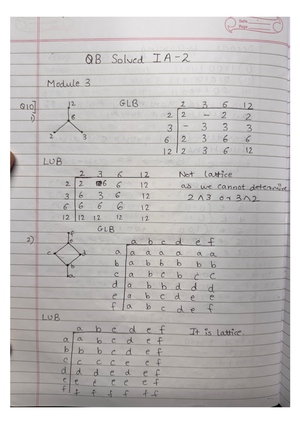 QB Solved IA-2
Module 3
Q10]
1)
12
6
2 3
GLB
2 3 6 12
2 2 - 2 2
3 - 3 3 3
6 2 3 6 6
12 2 3 6 12
LUB
2 3 6 12
2 2 6 6 12
3 6 3 6 12
6 6 6 6 12
12 12 12 12 12
Not lattice
as we cannot determine
2 ∧ 3 or 3 ∧ 2
2)
f
e
c d
b
a
GLB
a b c d e f
a a a a a a a
b a b b b b b
c a b c b c c
d a b b d d d
e a b c d e e
f a b c d e f
LUB
a b c d e f
a a b c d e f
b b b c d e f
c c c c e e f
d d d e d e f
e e e e e e f
f f f f f f f
It is lattice.